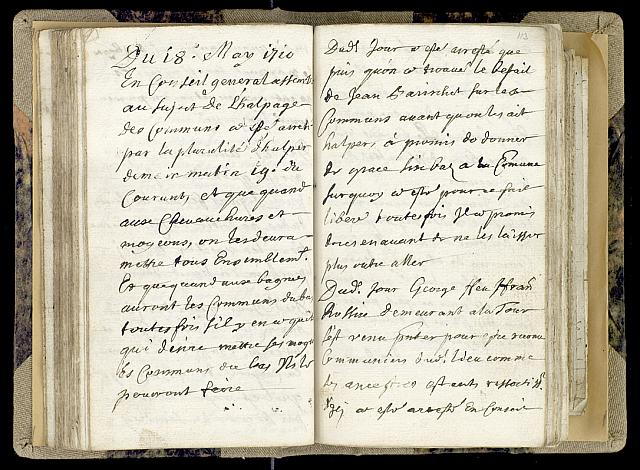 Du 18e May 1710
En Conseil general assemb
au sujet de Lhalpage
des Communs a esté arret
par la pluralité dhalper
demain matin 19e du
Courant, et que quand
aux Chevauchures et
moyeons, on les deura
mettre tous Ensemblem.t
Et que quand aux bagnes
auront les Communs du bas
toutes fois sil y en a qui
qui desire mettre ses mog
és Communs du bas Ils le
pouront feire
113
Dud. Jour a esté arresté que
puis quon a trouué le betail
de Jean sur les
Communs auant quon les ait
halpers à promis de donner
de grace Cinq baz a la Comune
surquoy a esté pour ce fait
liberé toutes fois Il a promis
dores en auant de ne les laisser
plus outre aller
Dud. Jour George ffeu ffran
Rossier demeurant a la Tour
sest venu pour estre reconu
Communier dud. Lieu comme
les ancestres estants
a esté arresté En Conseil